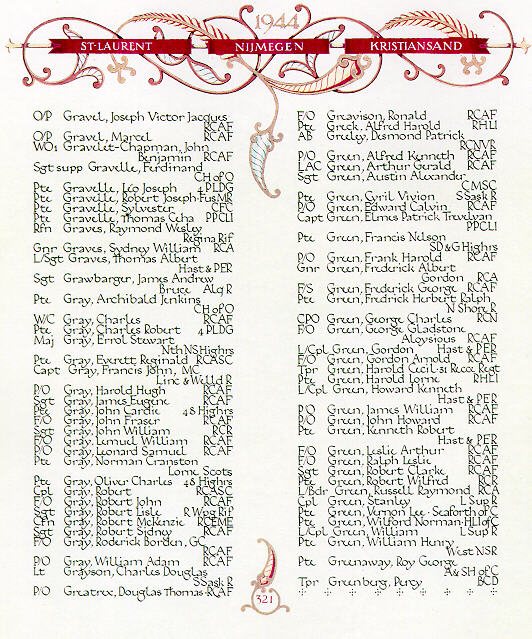 1944
ST·LAURENT NIJMEGEN KRISTIANSAND
O/P Gravel, Joseph Victor Jacques
RCAF
O/P Gravel, Marcel RCAF
WO1 Gravelet-Chapman, John
Benjamin RCAF
Sgt supp Gravelle, Ferdinand
CH of O
Pte Gravelle, Léo Joseph 4 PLDG
Pte Gravelle, Robert Joseph·Fus MR
Pte Gravelle, Sylvester CFC
Pte Gravelle, Thomas Ceha PPCLI
Rfn Graves, Raymond Wesley
Regina Rif
Gnr Graves, Sydney William RCA
L/Sgt Graves, Thomas Albert
Hast & PER
Sgt Grawbarger, James Andrew
Bruce Alq R
Pte Gray, Archibald Jenkins
CH of O
W/C Gray, Charles RCAF
Pte Gray, Charles Robert 4 PLDG
Maj Gray, Errol Stewart
Nth NS Highrs
Pte Gray, Everett Reginald RCASC
Capt Gray, Francis John, MC
Linc & Welld R
P/O Gray, Harold Hugh RCAF
Sgt Gray, James Eugene RCAF
Pte Gray, John Cardie 48 Highrs
F/O Gray, John Fraser RCAF
Sgt Gray, John William RCR
F/O Gray, Lemuel William RCAF
P/O Gray, Leonard Samuel RCAF
Pte Gray, Norman Cranston
Lorne Scots
Pte Gray, Oliver Charles 48 Highrs
Cpl Gray, Robert RCASC
F/O Gray, Robert John RCAF
Sgt Gray, Robert Lisle R Wpg Rif
Cfn Gray, Robert McKenzie RCEME
Sgt Gray, Robert Sidney RCAF
F/O Gray, Roderick Borden, GC
RCAF
P/O Gray, William Adam RCAF
Lt Grayson, Charles Douglas
S Sask R
P/O Greatrex, Douglas Thomas·RCAF
F/O Greavison, Ronald RCAF
Pte Greck, Alfred Harold RHLI
AB Greeley, Desmond Patrick
RCNVR
P/O Green, Alfred Kenneth RCAF
LAC Green, Arthur Gerald RCAF
Sgt Green, Austin Alexander
CMSC
Pte Green, Cyril Vivion S Sask R
P/O Green, Edward Calvin RCAF
Capt Green, Elmes Patrick Trevelyan
PPCLI
Pte Green, Francis Nelson
SD & G Highrs
P/O Green, Frank Harold RCAF
Gnr Green, Frederick Albert
Gordon RCA
F/S Green, Frederick George RCAF
Pte Green, Fredrick Herbert Ralph
N Shore R
CPO Green, George Charles RCN
F/O Green, George Gladstone
Aloysious RCAF
L/Cpl Green, Gordon Hast & PER
F/O Green, Gordon Arnold RCAF
Tpr Green, Harold Cecil·31 Recce Regt
Pte Green, Harold Lorne RHLI
L/Cpl Green, Howard Kenneth
Hast & PER
P/O Green, James William RCAF
P/O Green, John Howard RCAF
Pte Green, Kenneth Robert
Hast & PER
F/O Green, Leslie Arthur RCAF
F/O Green, Ralph Leslie RCAF
Sgt Green, Robert Clarke RCAF
Pte Green, Robert Wilfred RCR
L/Bdr Green, Russell Raymond RCA
Cpl Green, Stanley L Sup R
Pte Green, Vernon Lee·Seaforth of C
Pte Green, Wilford Norman·HLI of C
L/Cpl Green, William L Sup R
Pte Green, William Henry
West NSR
Pte Greenaway, Roy George
A & SH of C
Tpr Greenberg, Percy BCD
321